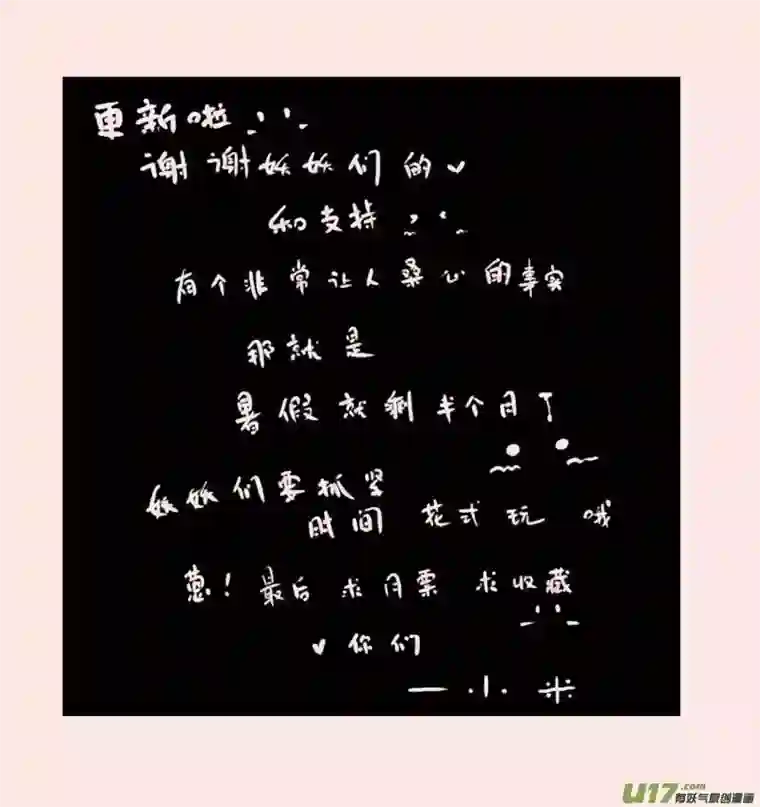 更新啦
谢谢妖妖们的♥
和支持
有个非常让人桑心的事实
那就是
暑假就剩半个月了
妖妖们要抓紧
时间 花式玩 哦
葱！最后 求月票 求收藏
♥你们
一小米
U17.com
有妖气原创漫画